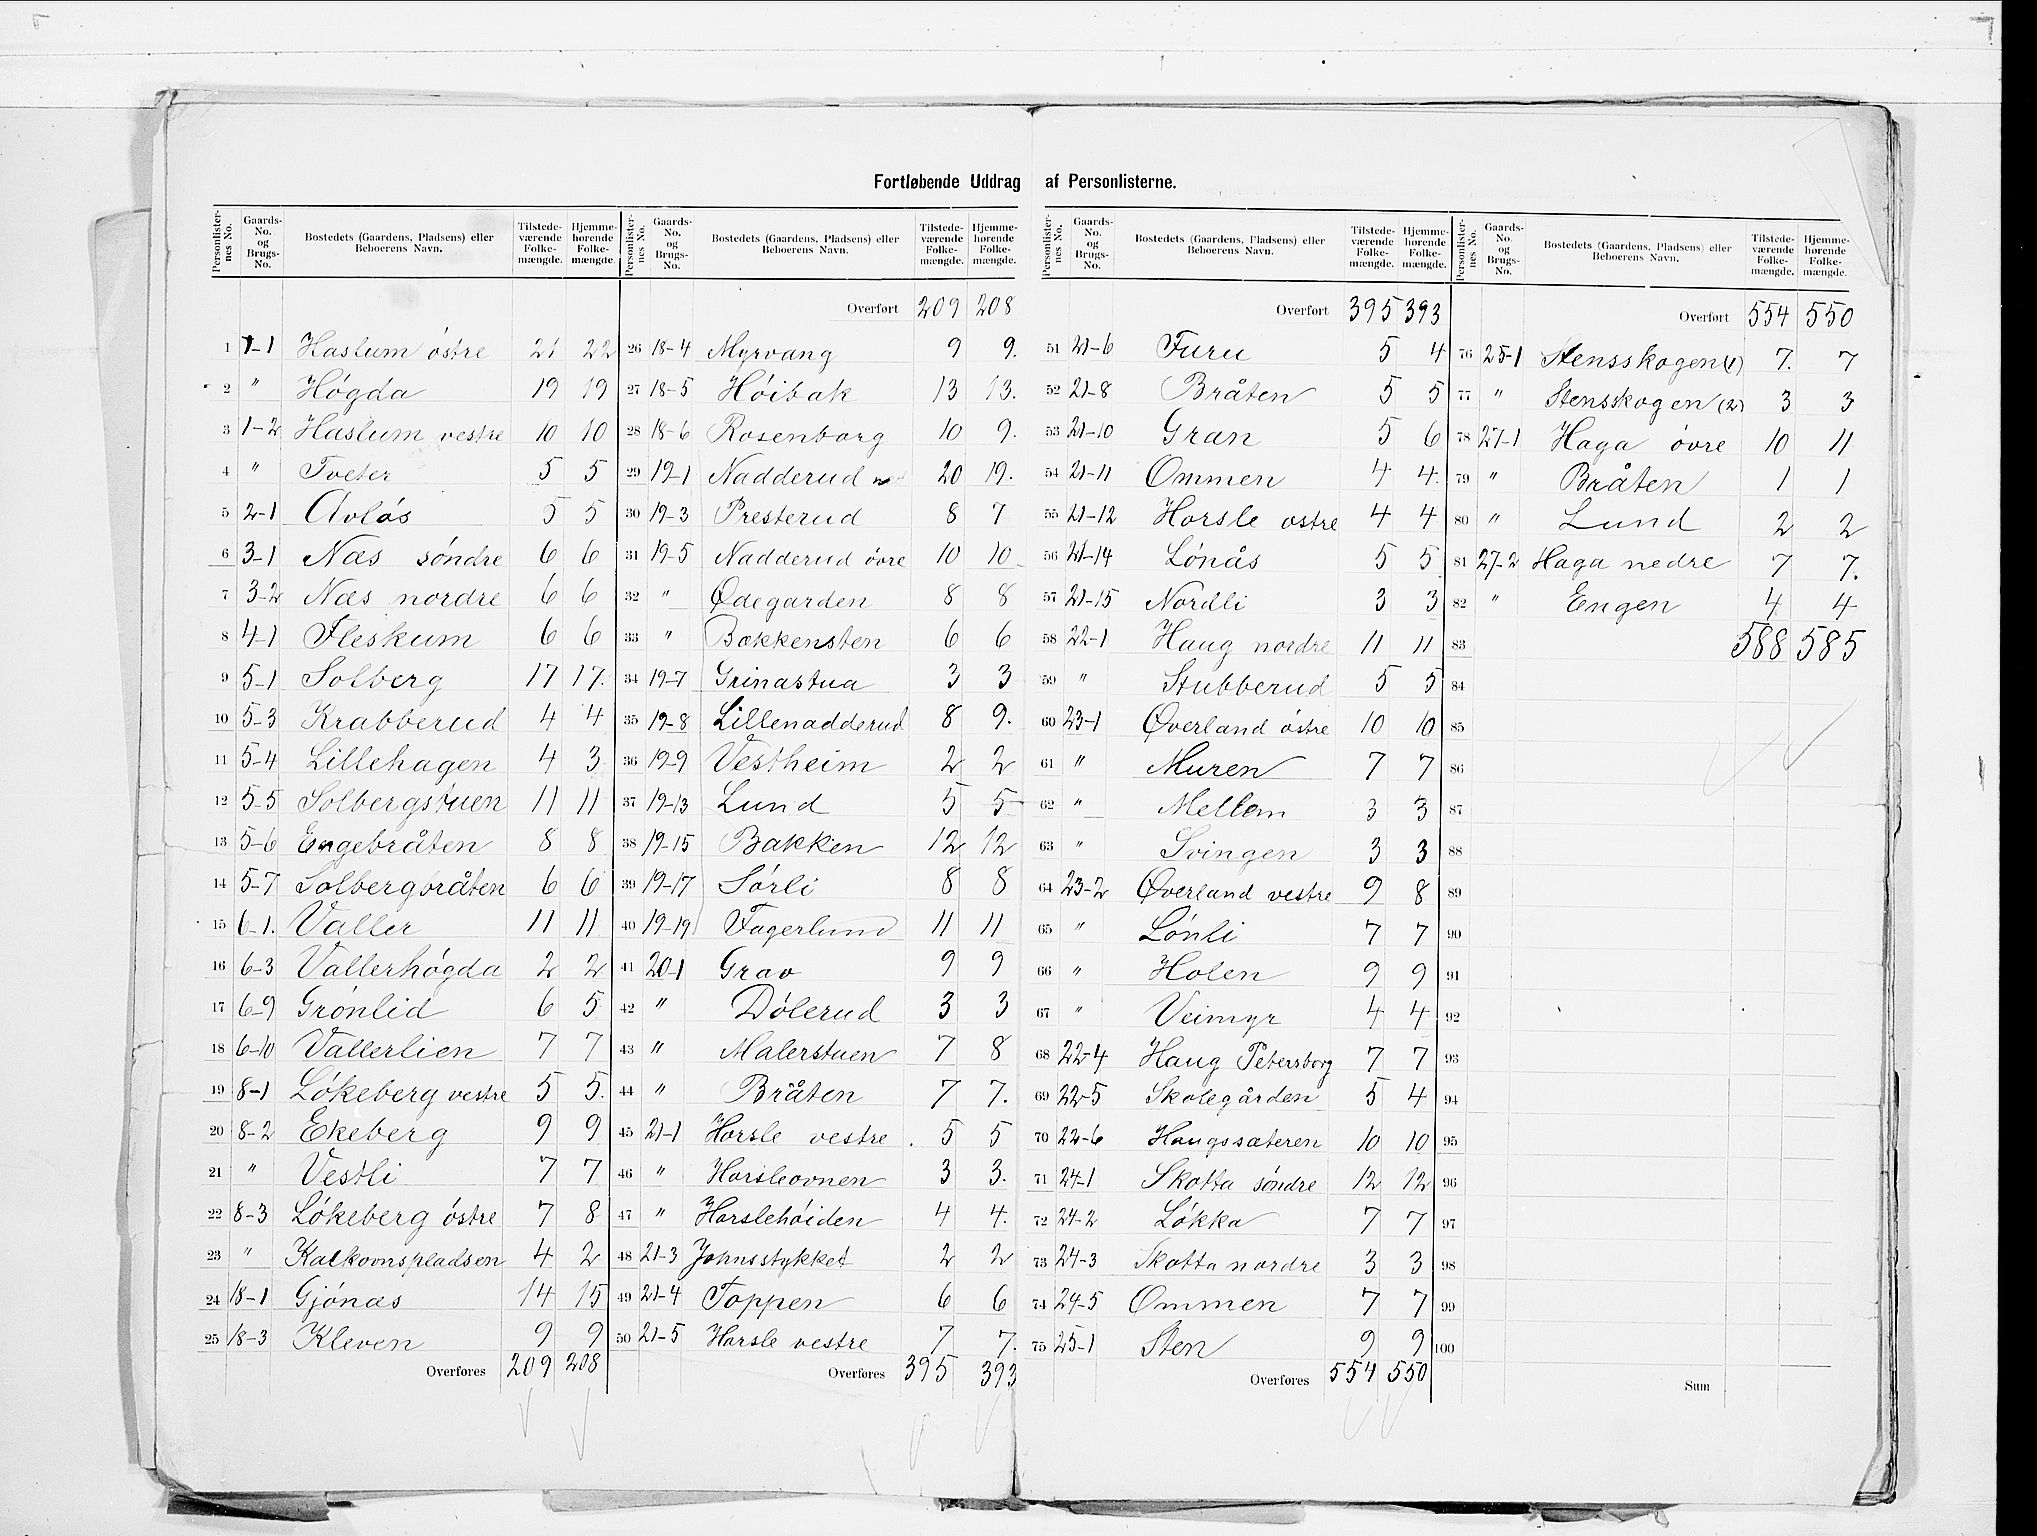 Fortløbende Uddrag af Personlisterne.
Personlister-nes No. Gaards-No. og Brugs-No. Bostedets (Gaardens, Pladsens) eller Beboerens Navn. Tilstede-værende Folke-mængde. Hjemme-hørende Folke-mængde.
1 1-1 Haslum östre 21 22
2 " Högda 19 19
3 1-2 Haslum vestre 10 10
4 " Tveter 5 5
5 2-1 Avlös 5 5
6 3-1 Næs söndre 6 6
7 3-2 Næs nordre 6 6
8 4-1 Fleskum 6 6
9 5-1 Solberg 17 17.
10 5-3 Krabberud 4 4
11 5-4 Lillehagen 4 3
12 5-5 Solbergstuen 11 11
13 5-6 Engebråten 8 8
14 5-7 Solbergbråten 6 6
15 6-1. Valler 11 11
16 6-3 Vallerhögda 2 2
17 6-9 Grönlid 6 5
18 6-10 Vallerlien 7 7
19 8-1 Lökeberg vestre 5 5.
20 8-2 Ekeberg 9 9
21 " Vestli 7 7
22 8-3 Lökeberg östre 7 8
23 " Kalkovnspladsen 4 2
24 18-1 Gjönæs 14 15
25 18-3 Kleven 9 9
Overføres 209 208
Personlister-nes No. Gaards-No. og Brugs-No. Bostedets (Gaardens, Pladsens) eller Beboerens Navn. Tilstede-værende Folke-mængde. Hjemme-hørende Folke-mængde.
Overført 209 208
26 18-4 Myrvang 9 9.
27 18-5 Höibak 13 13.
28 18-6 Rosenborg 10 9.
29 19-1 Nadderud n 20 19.
30 19-3 Presterud 8 7
31 19-5 Nadderud övre 10 10
32 " Ødegarden 8 8
33 " Bakkensten 6 6
34 19-7 Grinastua 3 3
35 19-8 Lillenadderud 8 9.
36 19-9 Vestheim 2 2
37 19-13 Lund 5 5
38 19-15 Bakken 12 12
39 19-17 Sörli 8 8
40 19-19 Fagerlund 11 11
41 20-1 Grav 9 9
42 " Dölerud 3 3
43 " Malerstuen 7 8
44 " Bråten 7 7.
45 21-1 Horsle vestre 5 5
46 " Horsleovnen 3 3.
47 " Horslehöiden 4 4.
48 21-3 Johnsstykket 2 2
49 21-4 Toppen 6 6
50 21-5 Horsle vestre 7 7.
Overføres 395 393
Personlister-nes No. Gaards-No. og Brugs-No. Bostedets (Gaardens, Pladsens) eller Beboerens Navn. Tilstede-værende Folke-mængde. Hjemme-hørende Folke-mængde.
Overført 395 393
51 21-6 Furu 5 4
52 21-8 Bråten 5 5
53 21-10 Gran 5 6
54 21-11 Ommen 4 4.
55 21-12 Horsle ostre 4 4
56 21-14 Lönås 5 5
57 21-15 Nordli 3 3
58 22-1 Haug nordre 11 11
59 " Stubberud 5 5
60 23-1 Øverland östre 10 10
61 " Muren 7 7
62 " Mellem 3 3
63 " Svingen 3 3
64 23-2 Øverland vestre 9 8
65 " Lönli 7 7
66 " Holen 9 9
67 " Veimyr 4 4
68 22-4 Haug Petersborg 7 7
69 22-5 Skolegården 5 4
70 22-6 Haugssæteren 10 10
71 24-1 Skotta söndre 12 12
72 24-2 Lökka 7 7
73 24-3 Skotta nordre 3 3
74 24-5 Ommen 7 7
75 25-1 Sten 9 9
Overføres 554 550
Personlister-nes No. Gaards-No. og Brugs-No. Bostedets (Gaardens, Pladsens) eller Beboerens Navn. Tilstede-værende Folke-mængde. Hjemme-hørende Folke-mængde.
Overført 554 550
76 25-1 Stensskogen (1) 7. 7
77 " Stensskogen (2) 3 3
78 27-1 Haga övre 10 11
79 " Bråten 1 1
80 " Lund 2 2
81 27-2 Haga nedre 7 7.
82 " Engen 4 4
83 588 585
84
85
86
87
88
89
90
91
92
93
94
95
96
97
98
99
100
Sum